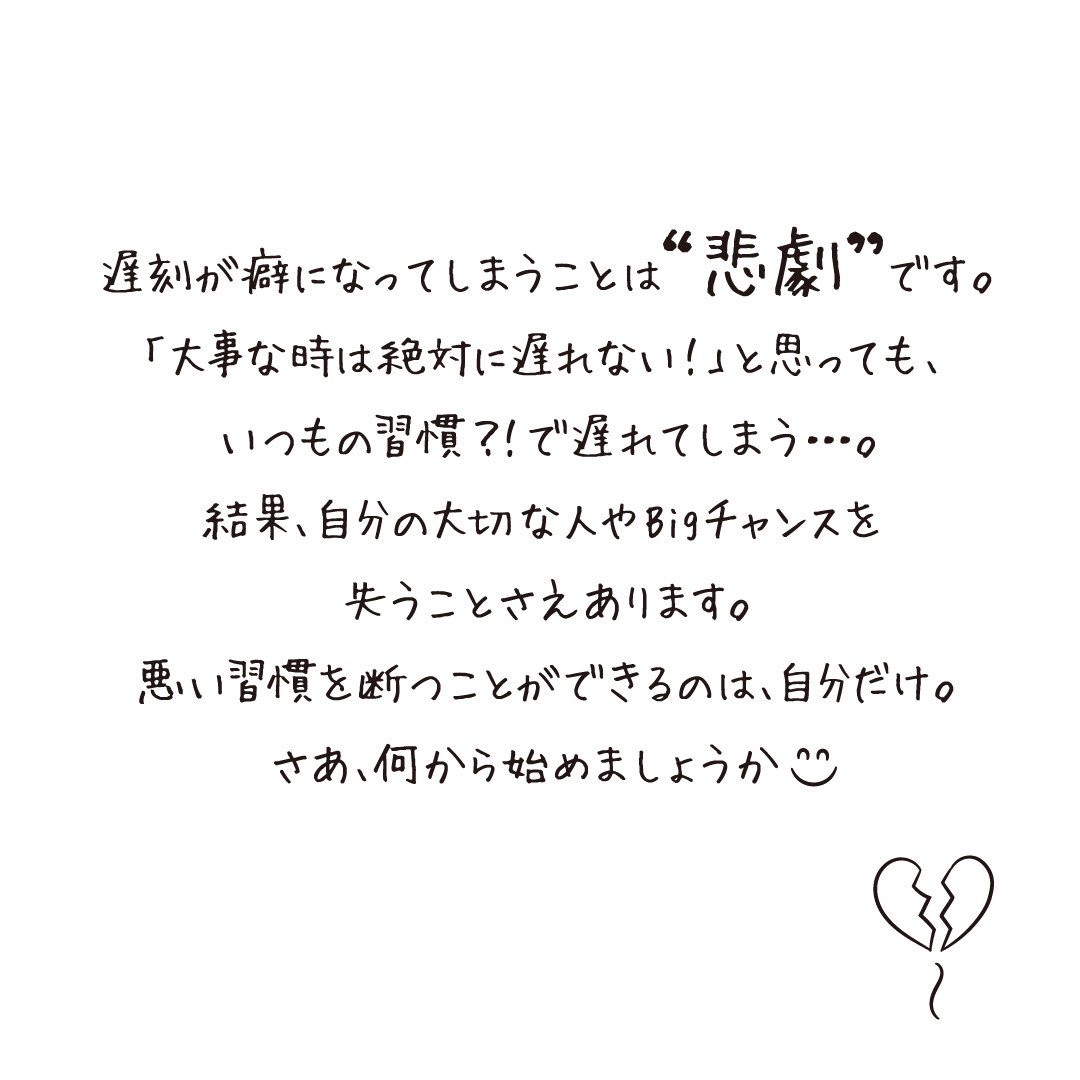 遅刻が癖になってしまうことは“悲劇”です。
「大事な時は絶対に遅れない！」と思っても、
いつもの習慣？！で遅れてしまう…。
結果、自分の大切な人やBigチャンスを
失うことさえあります。
悪い習慣を断つことができるのは、自分だけ。
さあ、何から始めましょうか